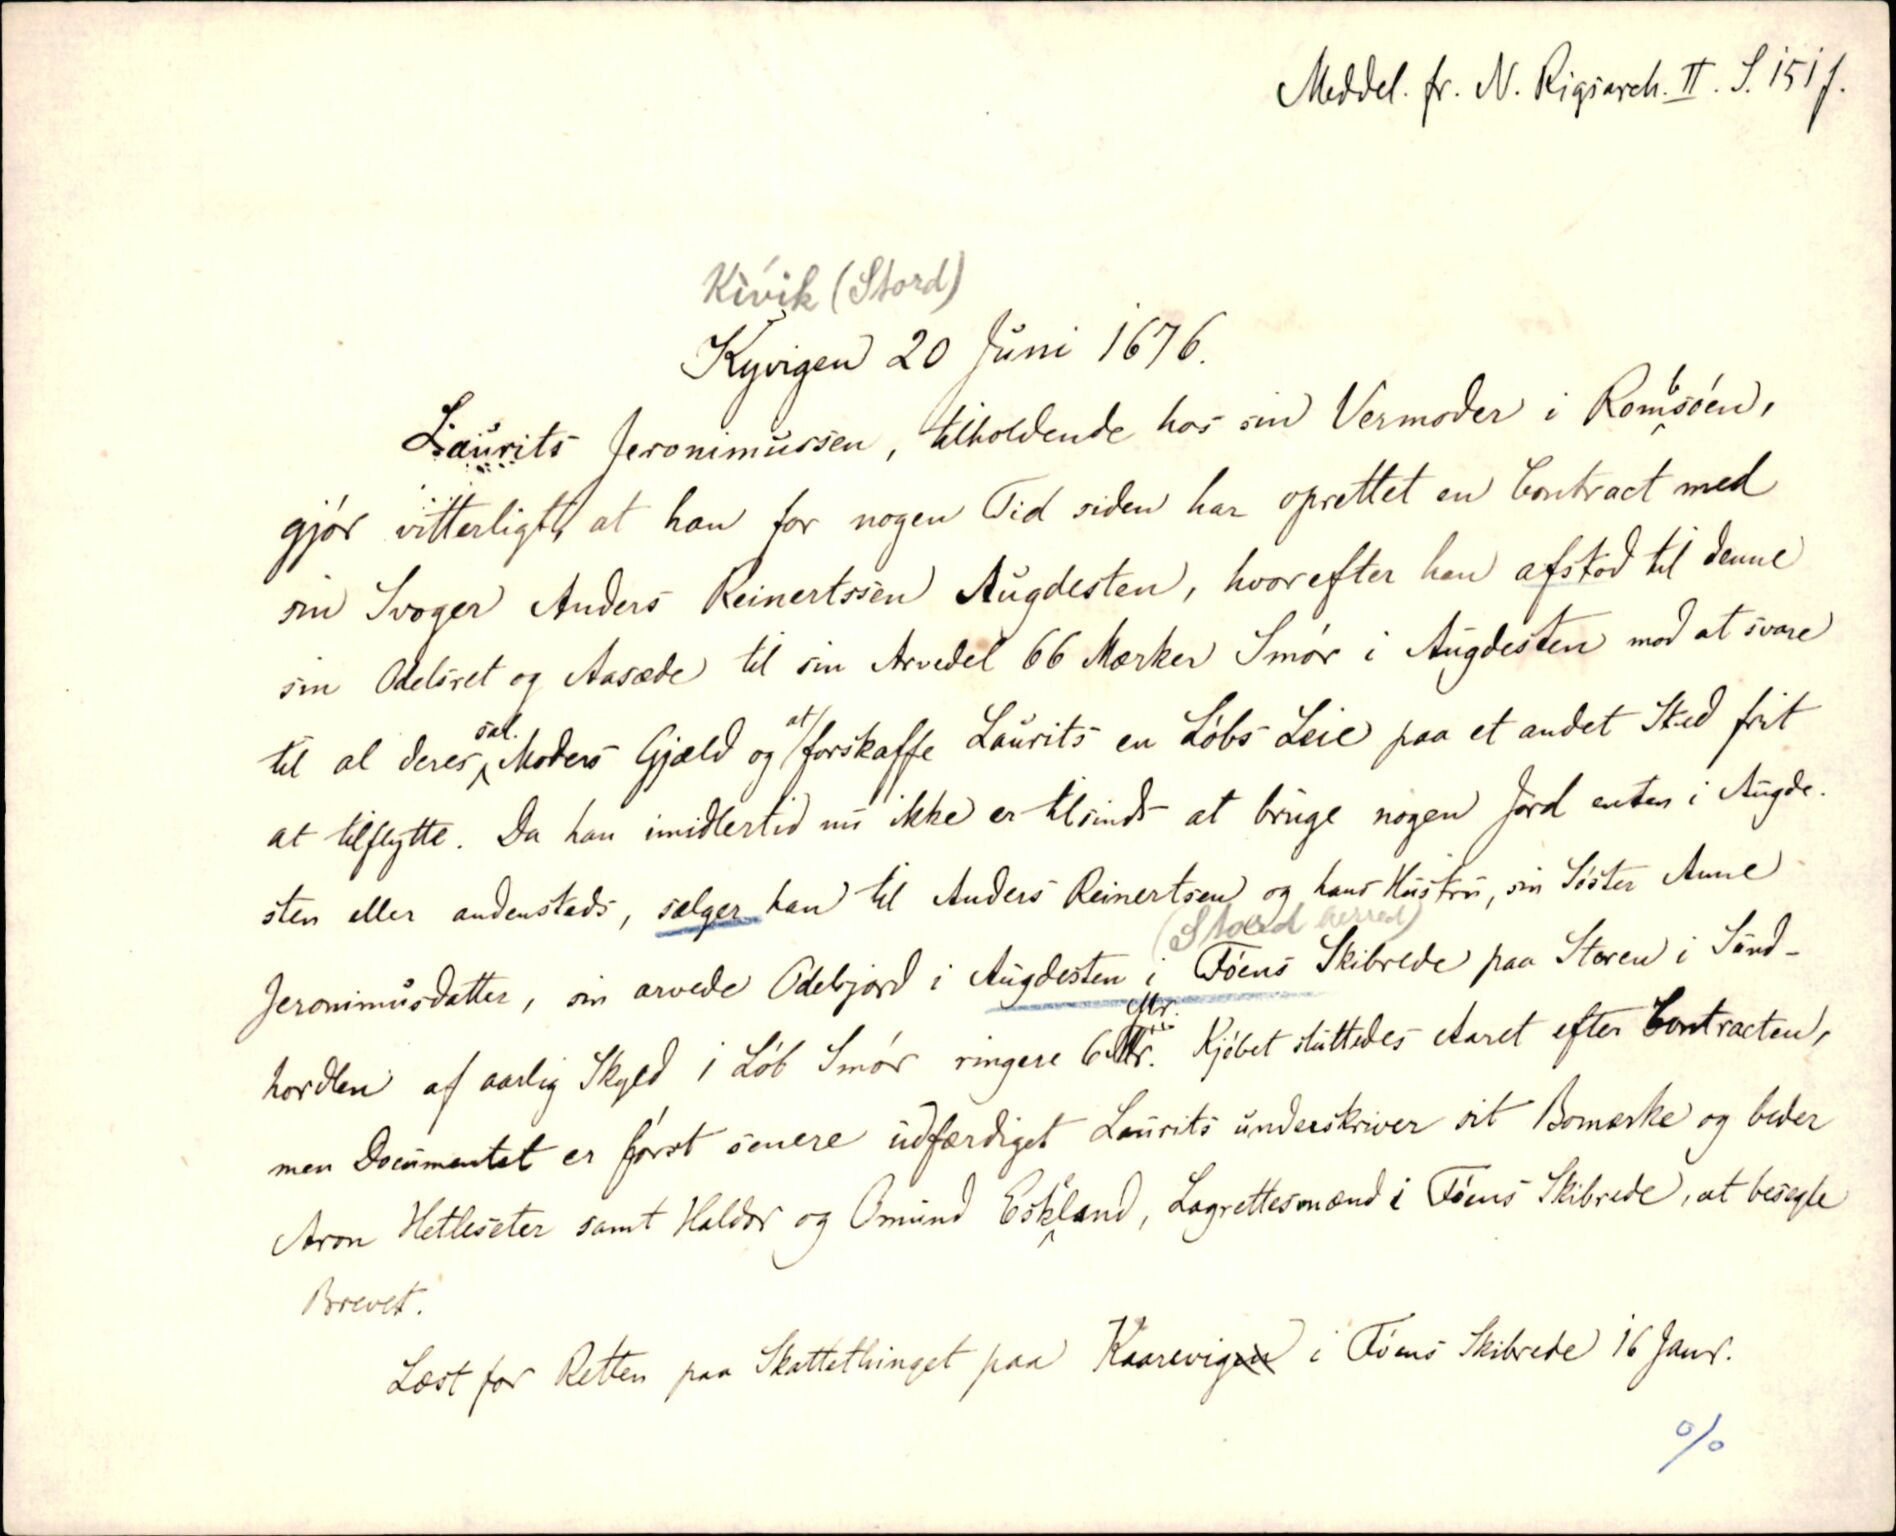 Meddel. fr. N. Rigsarch. II. S. 151 f.
Kívik (Stord)
Kyvigen 20 Juni 1676.
Laurits Jeronimussen, tilholdende hos sin Vermoder i Rombsöen,
gjör vitterligt, at han for nogen Tid siden har oprettet en Contract med
sin Svoger Anders Reinertssen Augdesten, hvorefter han afstod til denne
sin Odelsret og Aasæde til sin Arvedel 66 Mærker Smör i Augdesten mod at svare
til al deres sal. Moders Gjæld og at forskaffe Laurits en Löbs Leie paa et andet Sted frit
at tilflytte. Da han imidlertid nu ikke er tilsinds at bruge nogen Jord enten i Augde-
sten eller andensteds, sælger han til Anders Reinertsen og hans Hustru, sin Söster Anne
(Stord herred)
Jeronimusdatter, sin arvede Odelsjord i Augdesten i Föens Skibrede paa Storen i Sünd-
hordlen af aarlig Skyld 1 Löb Smör ringere 6 Mr. Kjöbet sluttedes Aaret efter Contracten,
men Documentet er först senere udfærdiget Laurits underskriver sit Bomærke og beder
Aron Hetleseter samt Haldor og Omund Eskeland, Lagrettesmænd i Föens Skibrede, at besegle
Brevet.
Læst for Retten paa Skattethinget paa Kaarevigen i Föens Skibrede 16 Janr.
%